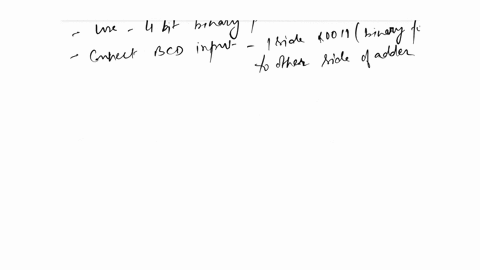 - Use - 4 bit binary
- Connect BCD input - 1 side & 0011 (binary
to other side of adder